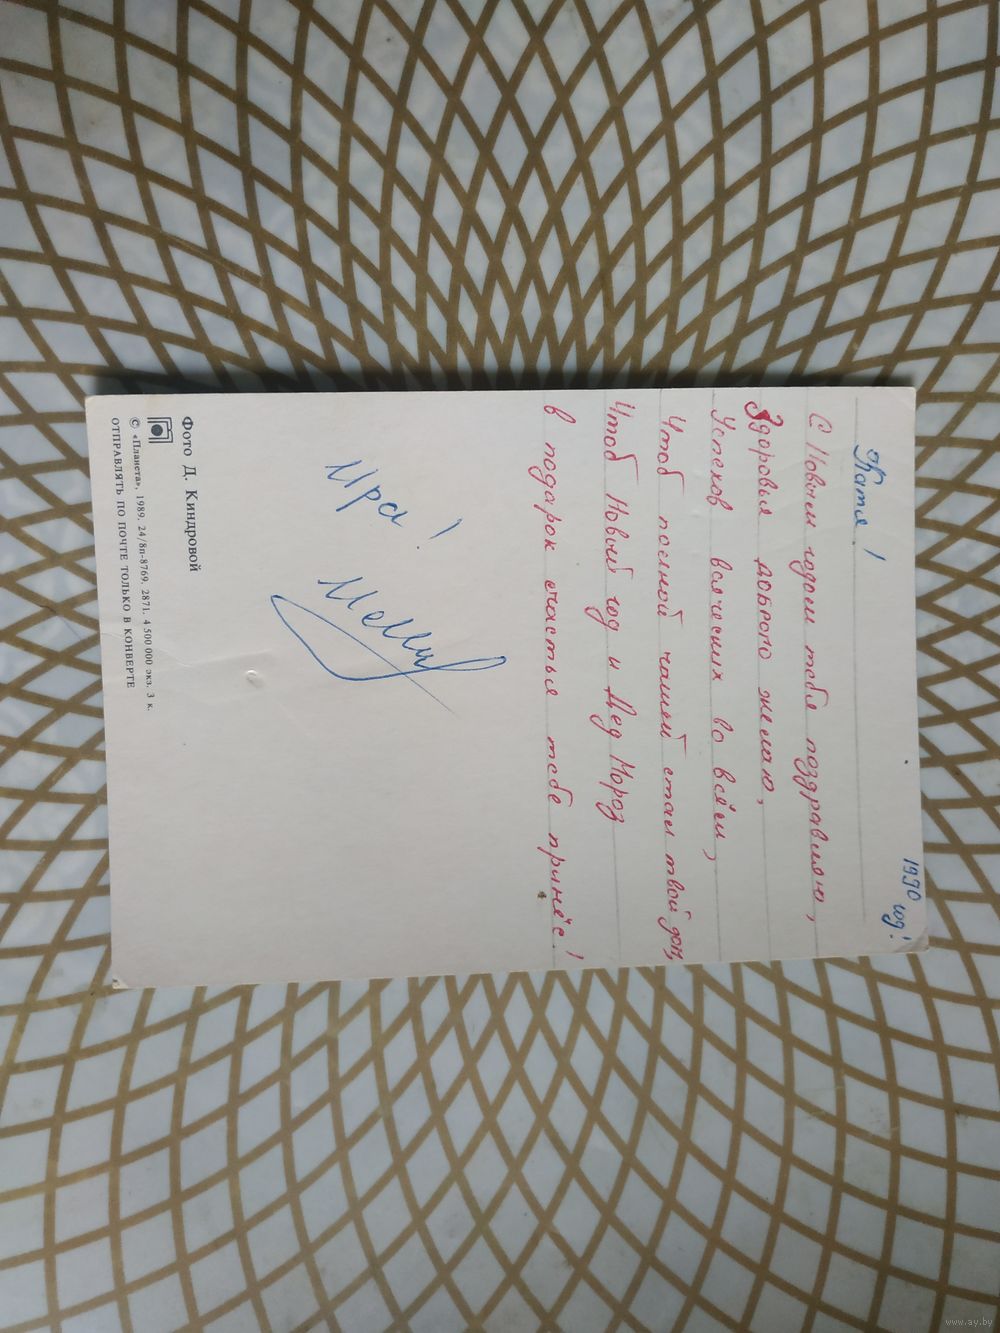 1990 год!
Катя!
С Новым годом тебя поздравляю,
Здоровья доброго желаю,
Успехов всяческих во всём,
Чтоб полной чашей стал твой дом,
Чтоб Новый год и Дед Мороз
в подарок счастья тебе принёс!
Ира!
Фото Д. Киндровой
© «Планета», 1989. 24/8п-8769. 2871. 4 500 000 экз. 3 к.
ОТПРАВЛЯТЬ ПО ПОЧТЕ ТОЛЬКО В КОНВЕРТЕ
www.ay.by